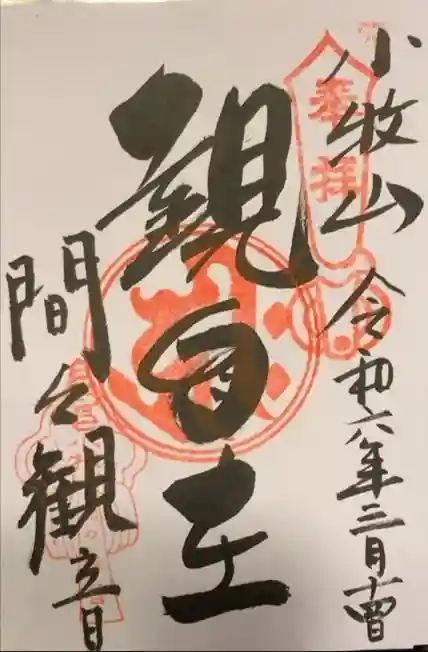 奉拝
小牧山
令和六年三月十四日
観自在
間々観音